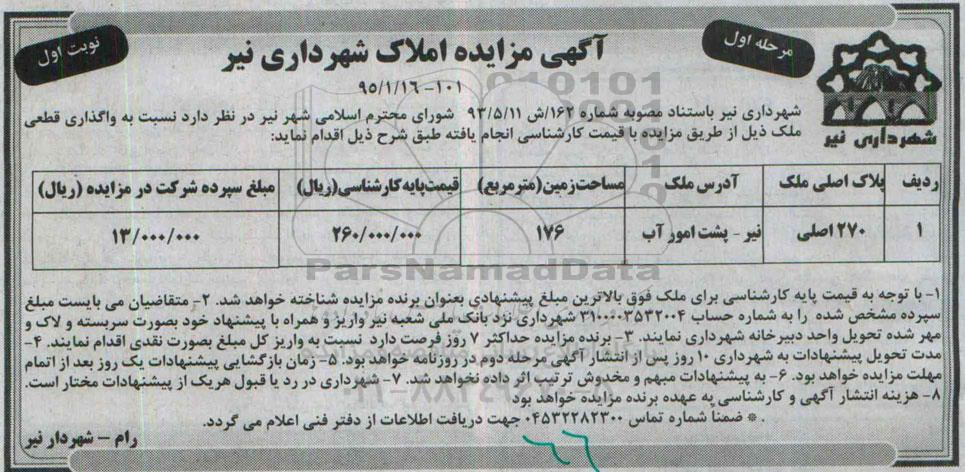 مرحله اول
نوبت اول
آگهی مزایده املاک شهرداری نیر
۱۰۱-۹۵/۱/۱۶
شهرداری نیر
شهرداری نیر باستناد مصوبه شماره ۱۶۲/ش ۹۳/۵/۱۱ شورای محترم اسلامی شهر نیر در نظر دارد نسبت به واگذاری قطعی
ملک ذیل از طریق مزایده با قیمت کارشناسی انجام یافته طبق شرح ذیل اقدام نماید:
ردیف پلاک اصلی ملک آدرس ملک مساحت زمین(مترمربع) قیمت پایه کارشناسی(ریال) مبلغ سپرده شرکت در مزایده (ریال)
۱ ۲۷۰ اصلی نیر - پشت امور آب ۱۷۶ ۲۶۰/۰۰۰/۰۰۰ ۱۳/۰۰۰/۰۰۰
ParsNamadData
۱- با توجه به قیمت پایه کارشناسی برای ملک فوق بالاترین مبلغ پیشنهادی بعنوان برنده مزایده شناخته خواهد شد. ۲- متقاضیان می بایست مبلغ
سپرده مشخص شده را به شماره حساب ۳۱۰۰۰۰۳۵۳۲۰۰۴ شهرداری نزد بانک ملی شعبه نیر واریز و همراه با پیشنهاد خود بصورت سربسته و لاک و
مهر شده تحویل واحد دبیرخانه شهرداری نمایند. ۳- برنده مزایده حداکثر ۷ روز فرصت دارد نسبت به واریز کل مبلغ بصورت نقدی اقدام نمایند. ۴-
مدت تحویل پیشنهادات به شهرداری ۱۰ روز پس از انتشار آگهی مرحله دوم در روزنامه خواهد بود. ۵- زمان بازگشایی پیشنهادات یک روز بعد از اتمام
مهلت مزایده خواهد بود. ۶- به پیشنهادات مبهم و مخدوش ترتیب اثر داده نخواهد شد. ۷- شهرداری در رد یا قبول هریک از پیشنهادات مختار است.
۸- هزینه انتشار آگهی و کارشناسی به عهده برنده مزایده خواهد بود
* ضمنا شماره تماس ۰۴۵۳۲۲۸۲۳۰۰ جهت دریافت اطلاعات از دفتر فنی اعلام می گردد.
رام - شهردار نیر